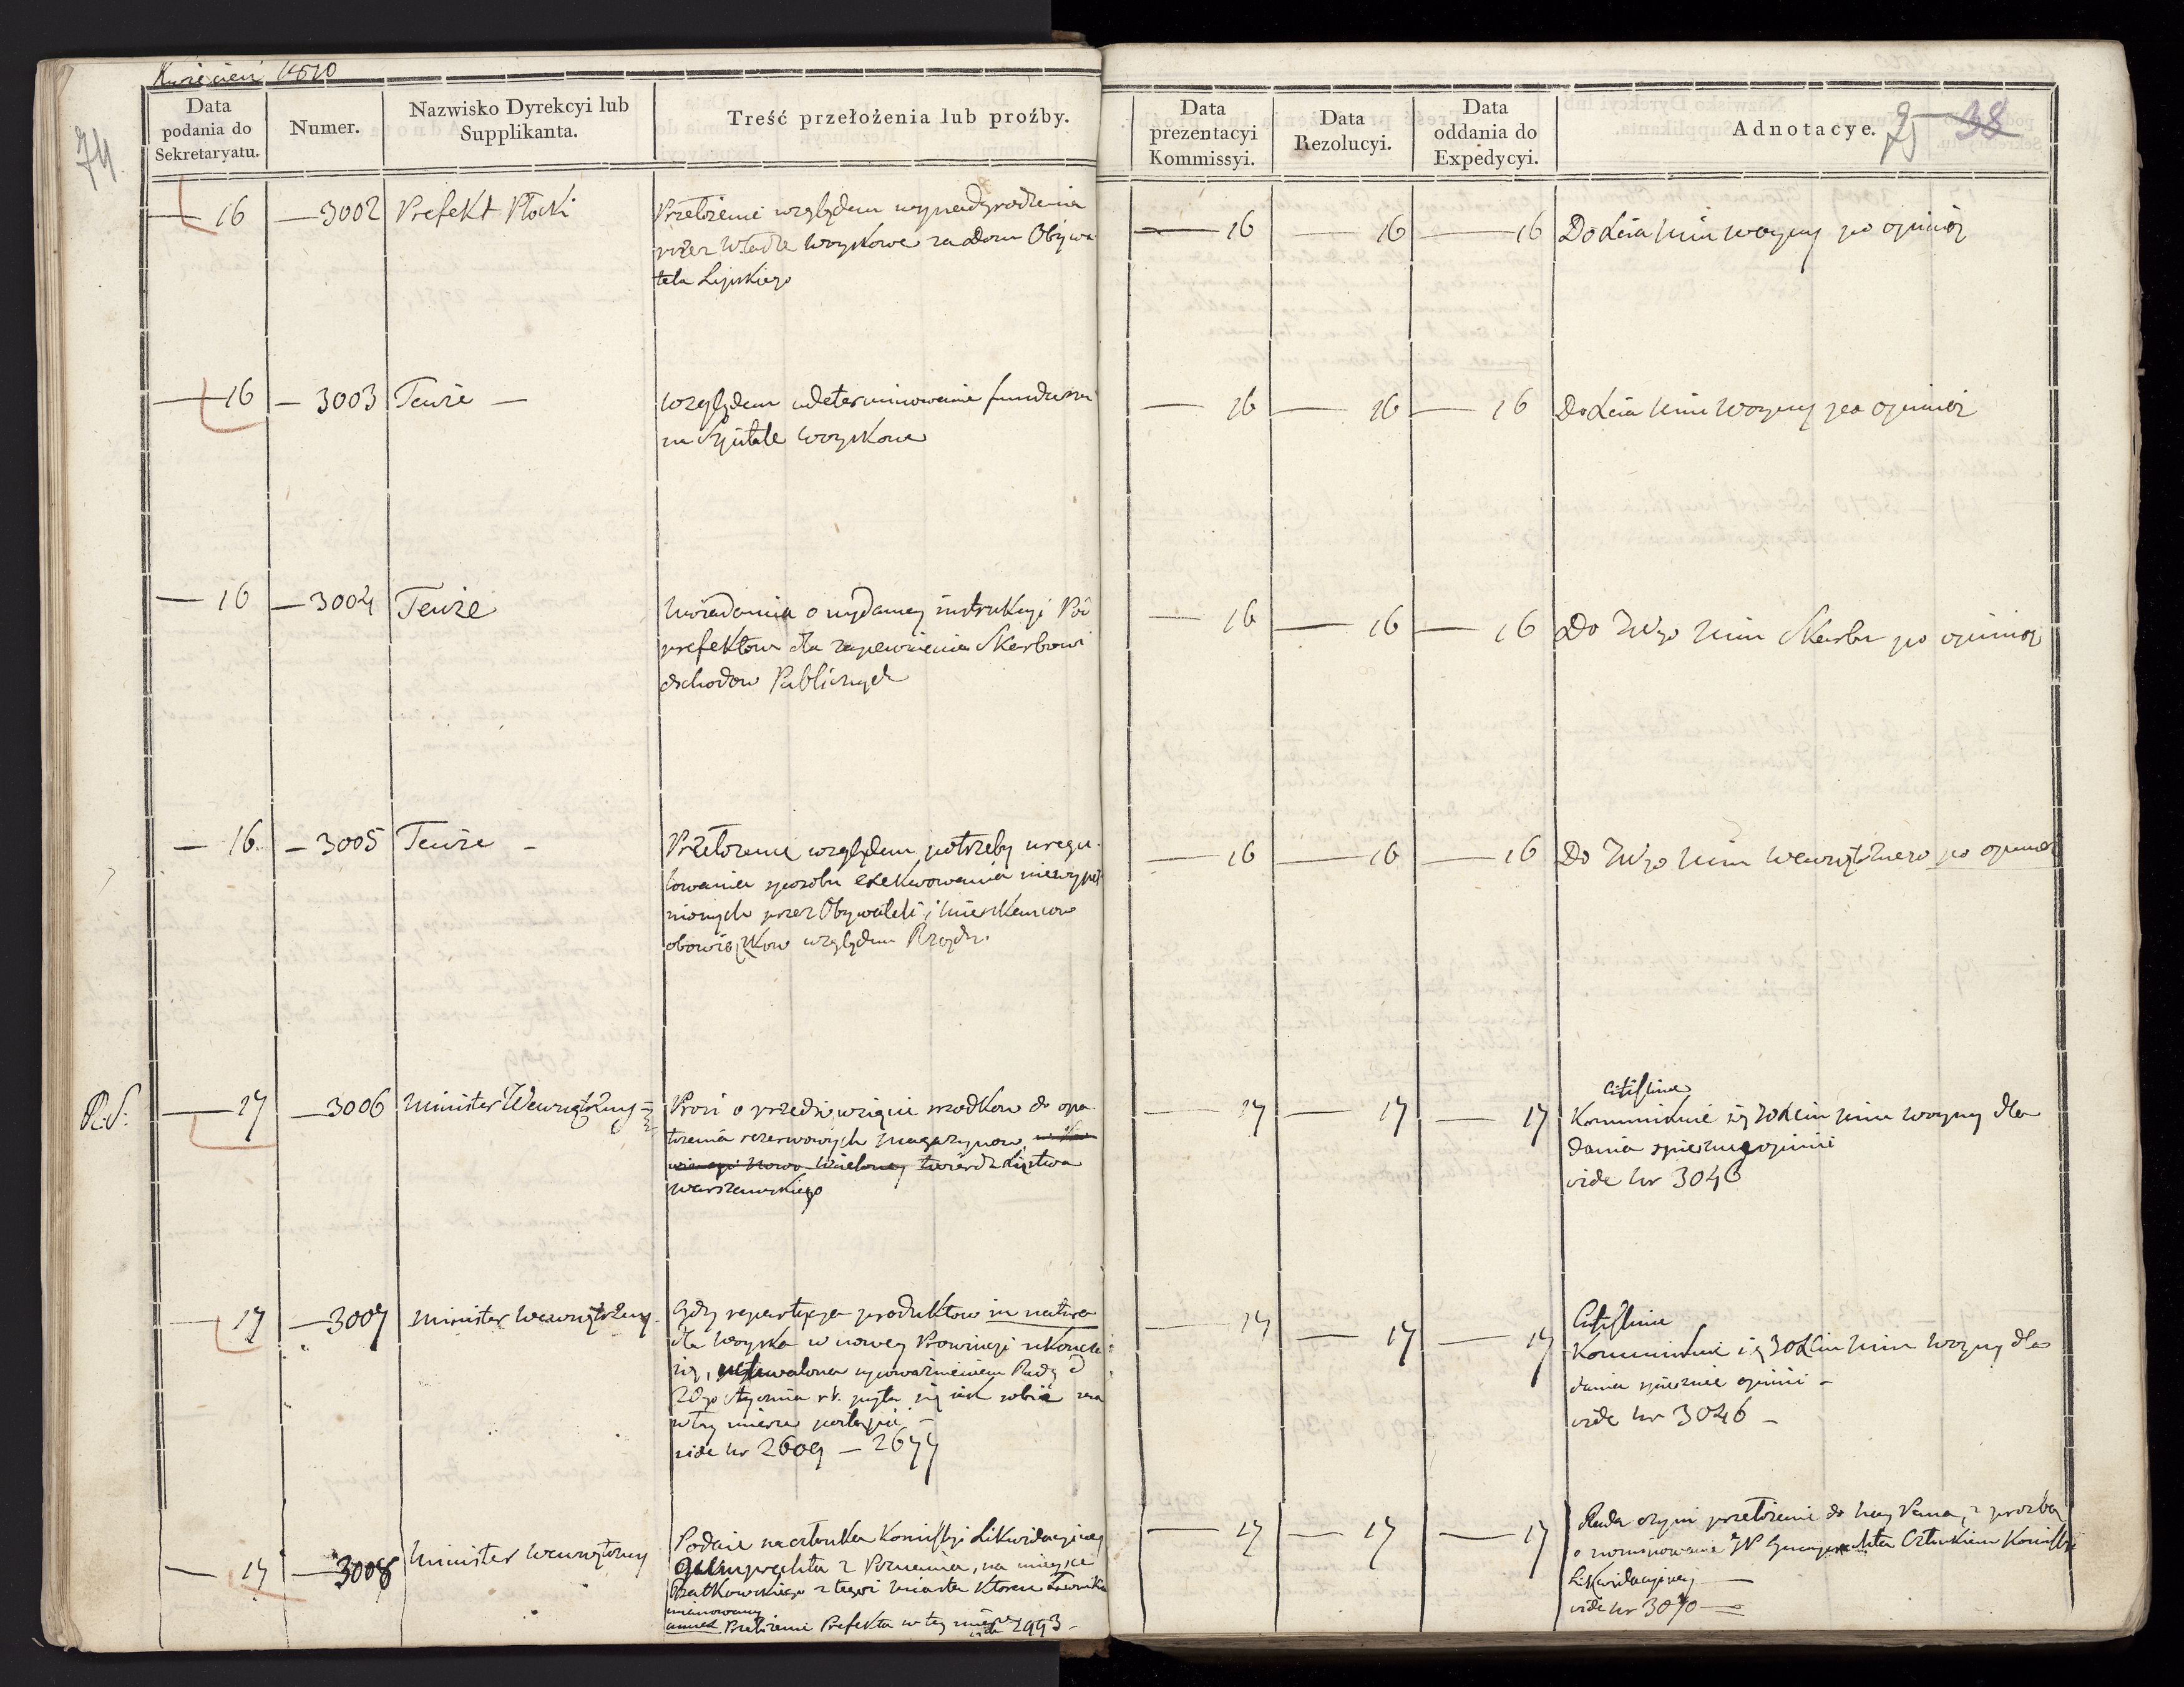 Kwiecień 1810
74.
Data podania do Sekretaryatu.
Numer.
Nazwisko Dyrekcyi lub Supplikanta.
Treść przełożenia lub proźby.
Data prezentacyi Kommissyi.
Data Rezolucyi.
Data oddania do Expedycyi.
Adnotacye.
38
— 16 — 3002 Prefekt Płocki
Przełożenie względem wynadgrodzenia
przez Władze Woyskowe za Dom Obywa-
tela Lipskiego
— 16 — 16 — 16 Do Xcia Min Woyny po opinią
— 16 — 3003 Tenże —
Względem udeterminowania funduszu
na Szpitale Woyskowe
— 16 — 16 — 16 Do Xcia Min Woyny po opinią
— 16 — 3004 Tenże
Uwiadamia o wydaney instrukcyi Pod
prefektom dla zapewnienia Skarbowi
dochodow Publicznych
— 16 — 16 — 16 Do JWgo Min Skarbu po opinią
— 16. — 3005 Tenże —
Przełożenie względem potrzeby uregu-
lowania sposobu exekwowania niewypeł
nionych przez Obywateli i Mieszkancow
obowiązkow względem Rządu.
— 16 — 16 — 16 Do JWgo Min Wewnętrznego po opinią
— 17 — 3006 Minister Wewnętrzny
Prosi o przedsięwzięcie srodkow do opa-
trzenia rezerwowych Magazynow
twierdz Xięstwa
Warszawskiego
— 17 — 17 — 17
Citissime
Kommunikuie się JOXciu Min Woyny dla
dania spieszney opinii
vide Nr 3046
— 17 — 3007 Minister Wewnętrzny
Gdy repartycya produktow in natura
dla Woyska w nowey Prowincyi
upoważnieniem Rady d
Stycznia r.b. pyta się iak sobie ma
w tey mierze postąpić —
vide Nr 2609 — 2677
— 17 — 17 — 17
Citissime
Kommunikuie się JOXciu Min Woyny dla
dania spieszney opinii —
vide Nr 3046 —
— 17 — 3008 Minister Wewnętrzny
Podaie na członka Komissyi Likwidacyiney
z Poznania, na mieysce
z tegoż Miasta
mianowany
Przełożenie Prefekta w tey mierze
vide 2993 —
— 17 — 17 — 17
Rada czyni przełożenie do Nay Pana, z prozbą
o nominowanie JP Członkiem Komissyi
Likwidacyiney —
vide Nr 3070 —